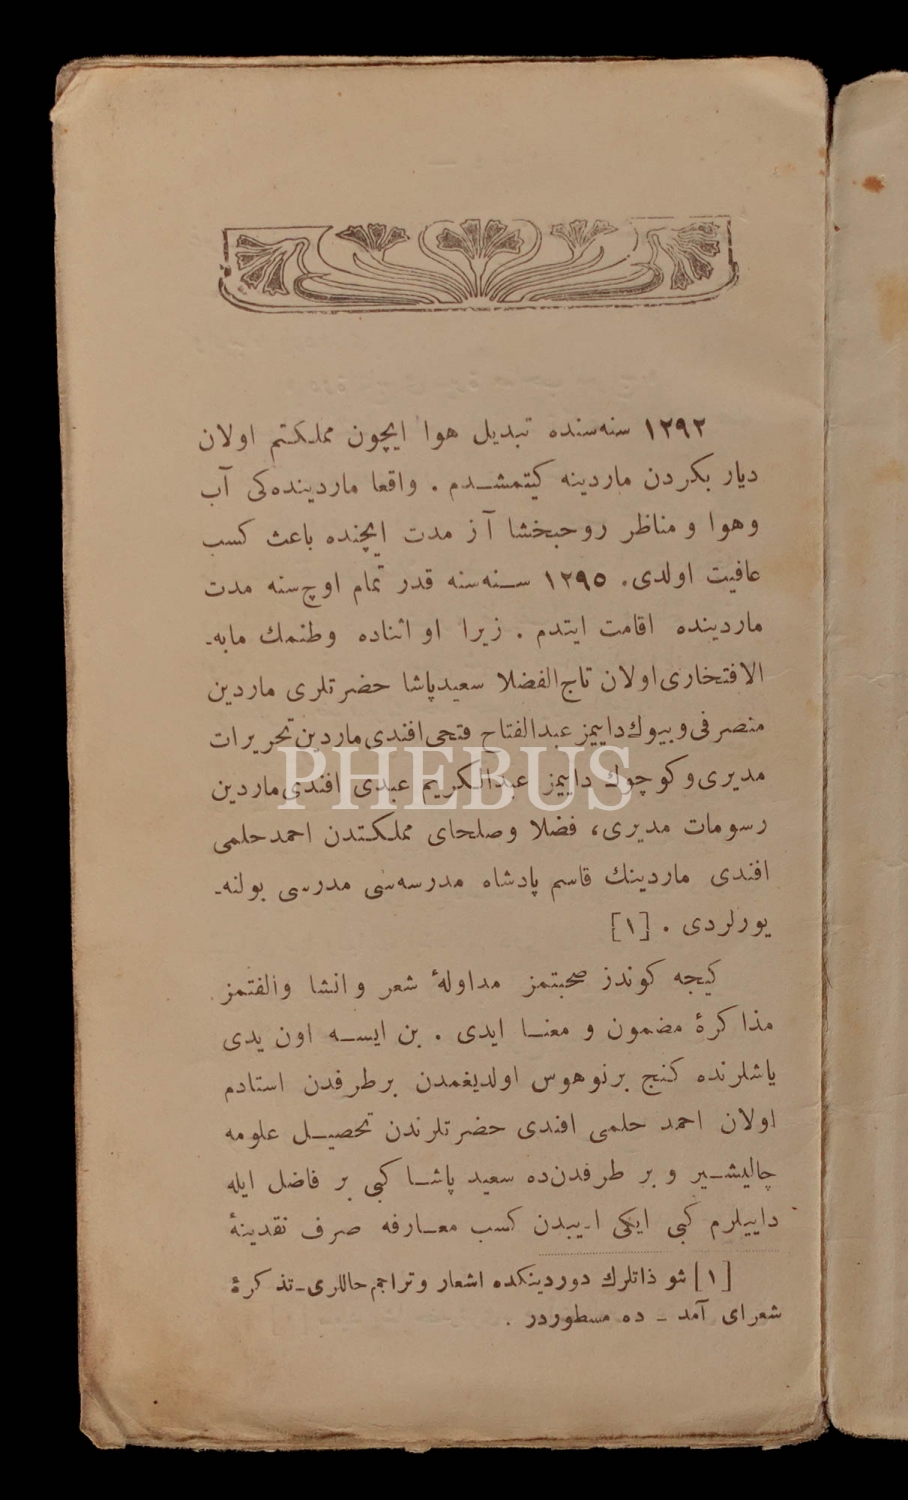 ١٢٩٢ سنه‌سنده تبديل هوا ايچون مملكتم اولان
ديار بكردن ماردينه كيتمشدم . واقعا ماردينده‌كی آب
وهوا و مناظر روحبخشا آز مدت ايچنده باعث كسب
عافيت اولدی . ١٢٩٥ سنه‌سنه قدر تمام اوچ سنه مدت
ماردينده اقامت ايتدم . زيرا او اثناده وطنمك مابه‌ـ
الافتخاری اولان تاج‌الفضلا سعيد پاشا حضرتلری ماردين
متصرفی و بيوك داييمز عبدالفتاح فتحی افندی ماردين تحريرات
مديری و كوچوك داييمز عبدالكريم عبدی افندی ماردين
رسومات مديری، فضلا وصلحای مملكتدن احمد حلمی
افندی ماردينك قاسم پادشاه مدرسه‌سی مدرسی بولنه‌ـ
يورلردی . [١]
كيجه كوندز صحبتمز مداولهٔ شعر و انشا والفتمز
مذاكرهٔ مضمون و معنا ايدی . بن ايسه اون يدی
ياشلرنده كنج برنوهوس اولديغمدن برطرفدن استادم
اولان احمد حلمی افندی حضرتلرندن تحصيل علومه
چاليشير و بر طرفدن‌ده سعيد پاشا كبی بر فاضل ايله
داييلرم كبی ايكی اديبدن كسب معارفه صرف نقدينهٔ
[١] شو ذاتلرك دوردينكده اشعار وتراجم حاللری ـ تذكرهٔ
شعرای آمد ـ ده مسطوردر .
PHEBUS